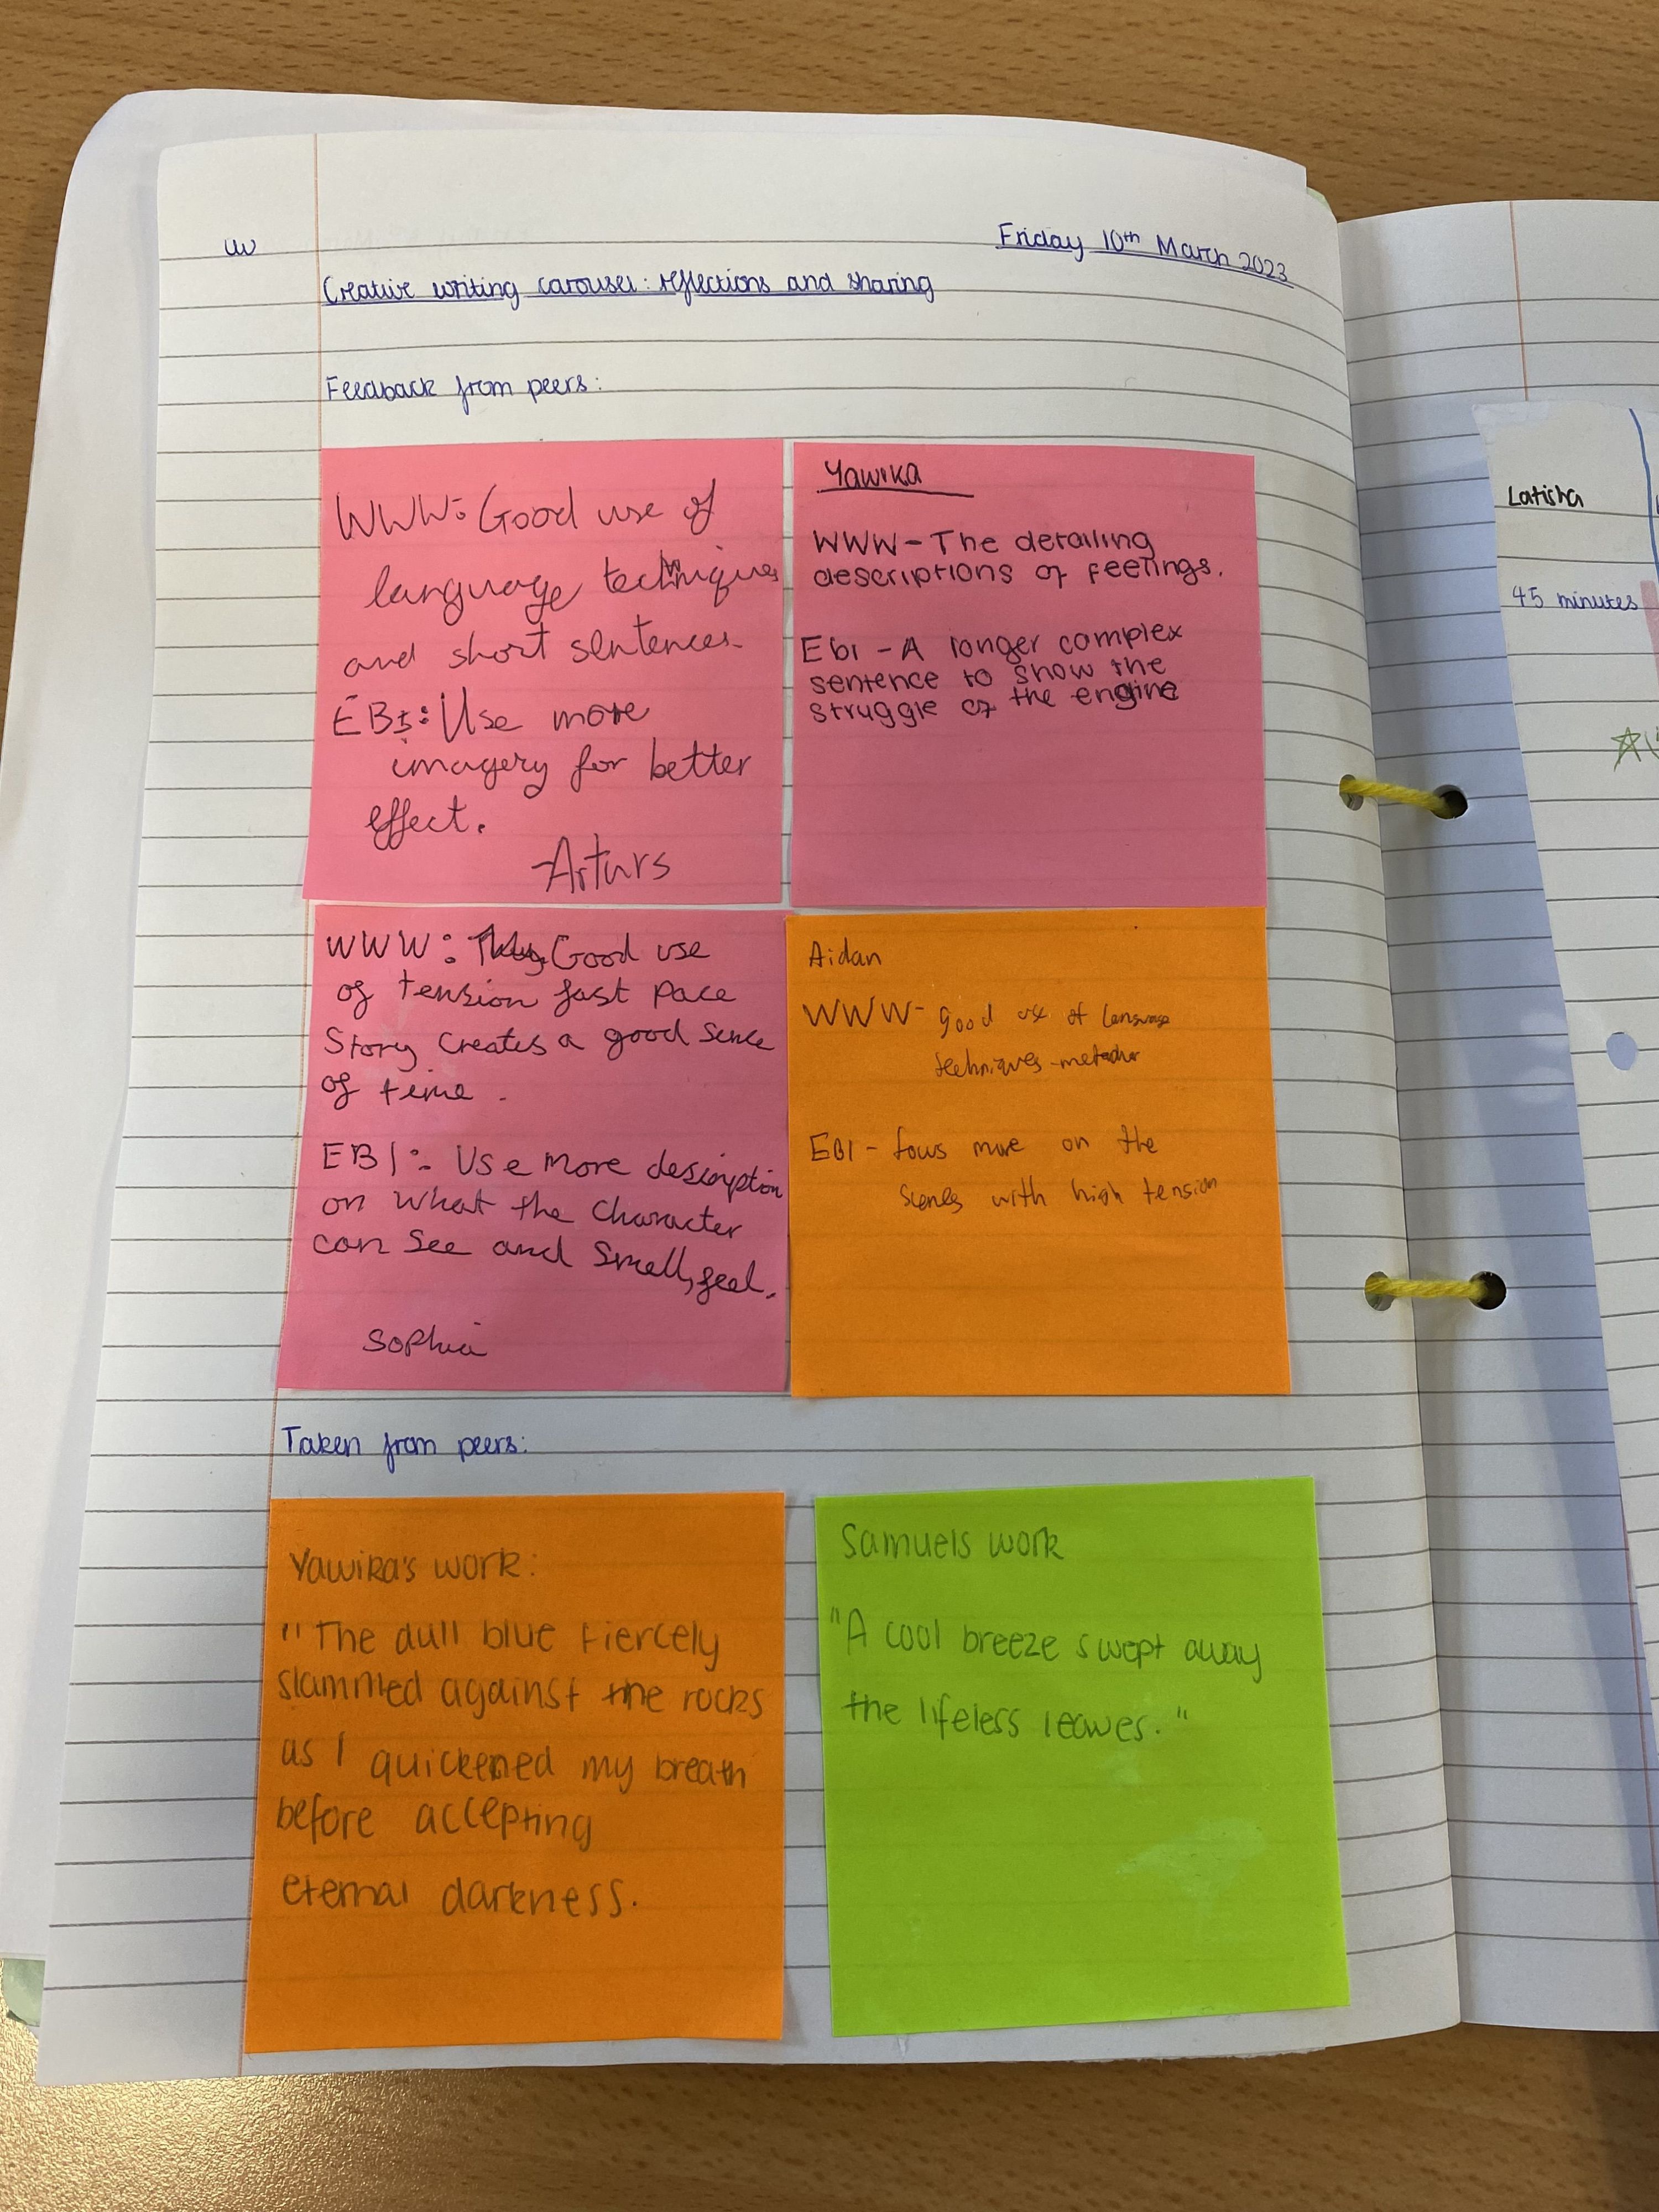 cw
Friday 10th March 2023
Creative writing carousel: reflections and sharing
Feedback from peers:
WWW: Good use of
language techniques
and short sentences.
EBI: Use more
imagery for better
effect.
-Arturs
Yawika
WWW - The detailing
descriptions of feelings.
Ebi - A longer complex
sentence to show the
struggle of the engine
WWW: Good use
of tension fast pace
Story creates a good sence
of time.
EBI: Use more description
on what the character
can see and smell, feel.
Sophia
Aidan
WWW- good use of language
techniques -
EBI - focus more on the
scenes with high tension
Taken from peers:
Yawika's work:
"The dull blue fiercely
slammed against the rocks
as I quickened my breath
before accepting
eternal darkness.
Samuels work
"A cool breeze swept away
the lifeless leaves."
Latisha
45 minutes